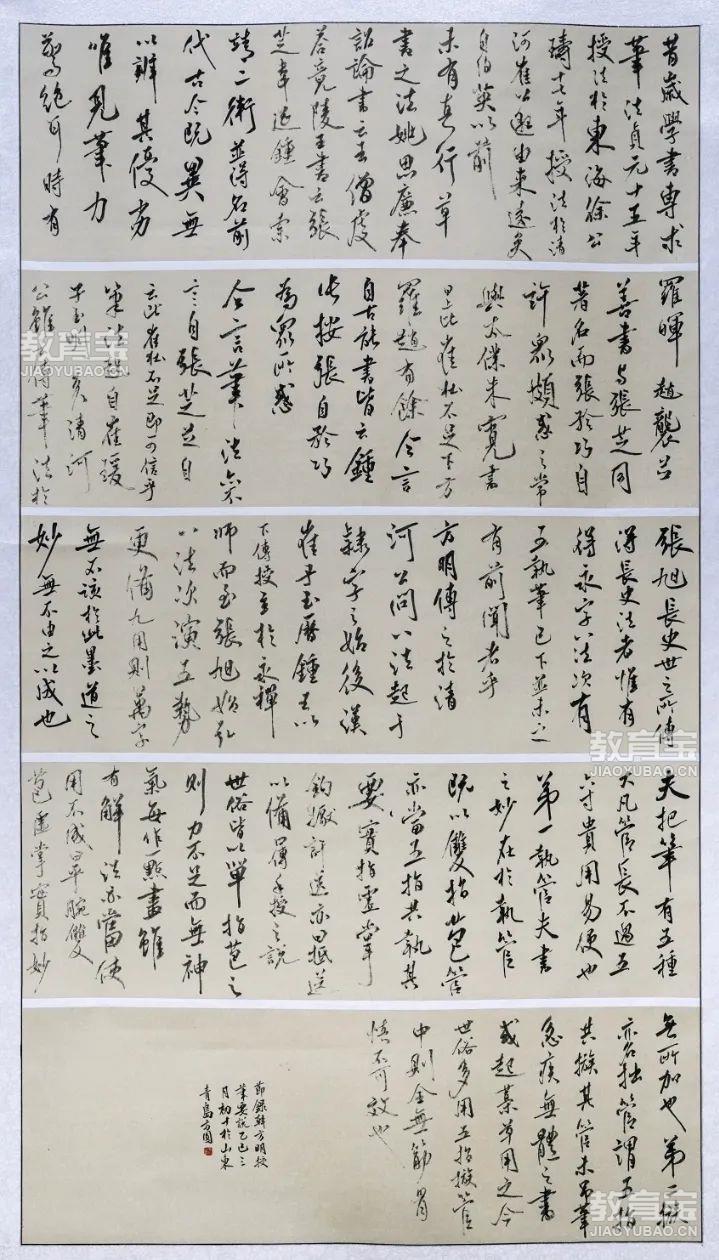 昔歲學書專求
筆法貞元十五年
授法於東海徐公
璹十七年授法於清
河崔公邈由來遠矣
自伯英以前
未有真行草
書之法姚思廉奉
詔論書云王僧虔
答竟陵王書云張
芝韋誕鍾會索
靖二衛並得名前
代古今既異無
以辨其優劣
唯見筆力
驚絕耳時有
羅暉趙襲並
善書與張芝同
著名而張矜巧自
許眾頗惑之嘗
與太僕朱寬書
云上比崔杜不足下方
羅趙有餘今言
自古能書皆云鍾
張按張自矜巧
為眾所惑
今言筆法亦
云自張芝芝自
云比崔杜不足即可信乎
筆法起自崔瑗
子玉明矣清河
公雖傳筆法於
張旭長史世之所傳
得長史法者惟有
得永字八法次有
五執筆已下並未之
有前聞者乎
方明傳之於清
河公問八法起于
隸字之始後漢
崔子玉歷鍾王以
下傳授至於永禪
師而至張旭始弘
八法次演五勢
更備九用則萬字
無不該於此墨道之
妙無不由之以成也
夫把筆有五種
大凡管長不過五
六寸貴用易便也
第一執管夫書
之妙在於執管
既以雙指苞管
亦當五指共執其
要實指虛掌
鉤擫訐送亦曰抵送
以備口傳手授之說
世俗皆以單指苞之
則力不足而無神
氣每作一點畫雖
有解法亦當使
用不成平腕雙
苞虛掌實指妙
無所加也第二㩇
亦名拙管謂五指
共㩇其管末吊筆
急疾無體之書
或起藁草用之今
世俗多用五指㩇管
中則全無筋骨
慎不可效也
節錄韓方明授
筆要說乙巳三
月初十於山東
青島方圓
教育宝
JIAOYUBAO.CN
教育宝
JIAOYUBAO.CN
教育宝
JIAOYUBAO.CN
教育宝
JIAOYUBAO.CN